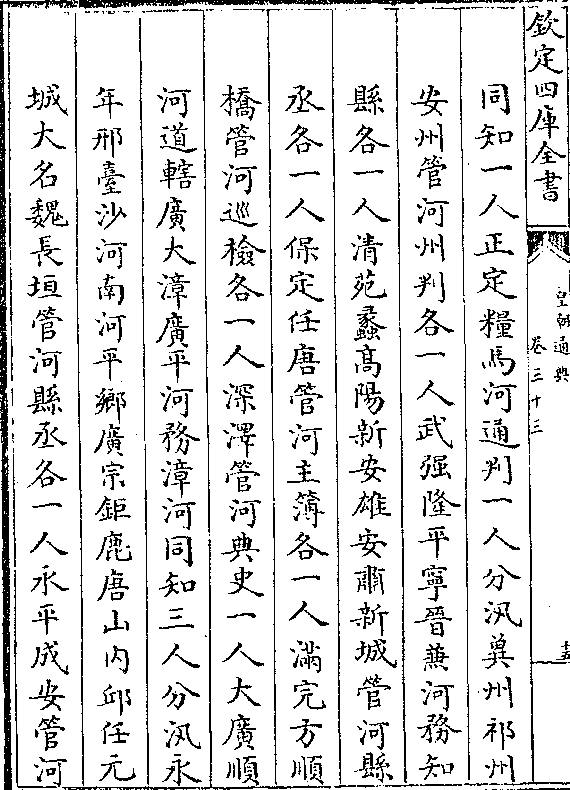 欽定四庫全書
皇朝通典
卷三十三
十五
同知一人正定糧馬河通判一人分汛冀州祁州
安州管河州判各一人武强隆平寧晉兼河務知
縣各一人清苑蠡髙陽新安雄安肅新城管河縣
丞各一人保定任唐管河主簿各一人滿完方順
橋管河巡檢各一人深澤管河典史一人大廣順
河道轄廣大漳廣平河務漳河同知三人分汛永
年邢臺沙河南河平鄉廣宗鉅鹿唐山内邱任元
城大名魏長垣管河縣丞各一人永平成安管河